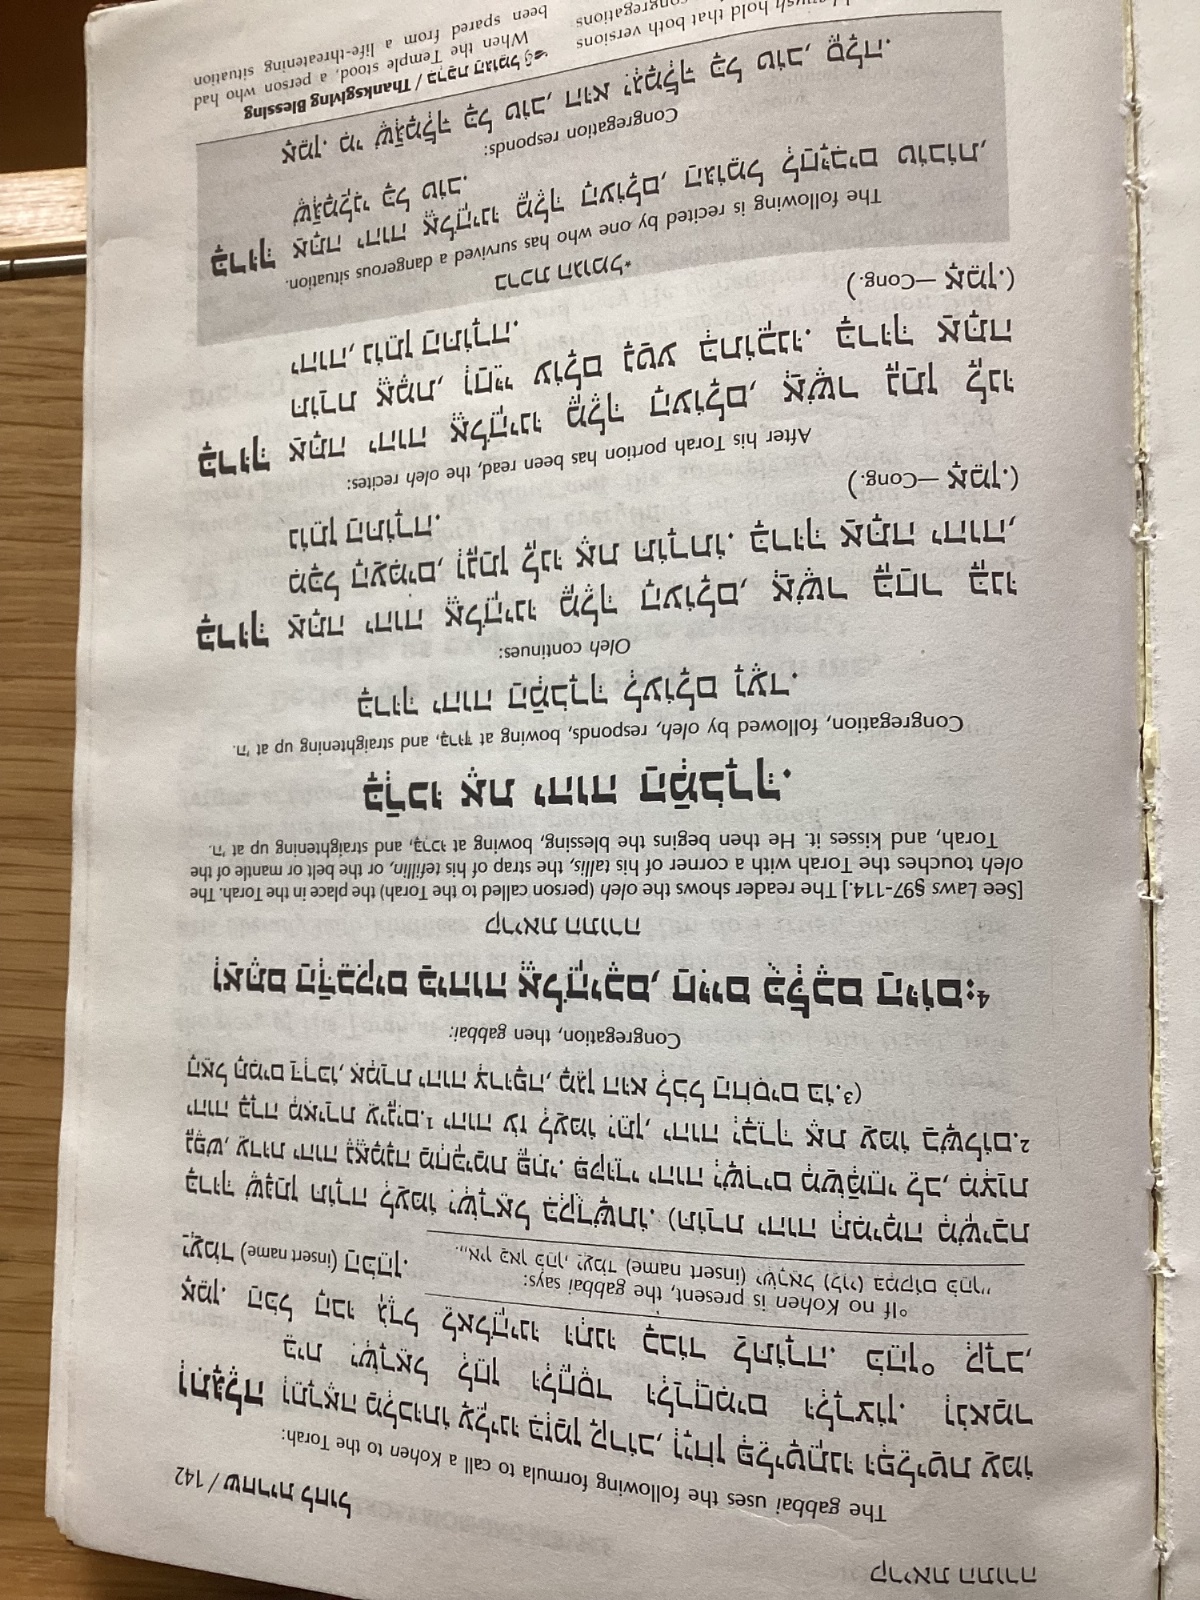 קריאת התורה
שחרית לחול / 142
The gabbai uses the following formula to call a Kohen to the Torah:
וְתִגָּלֶה וְתֵרָאֶה מַלְכוּתוֹ עָלֵינוּ בִּזְמַן קָרוֹב, וְיָחֹן פְּלֵיטָתֵנוּ וּפְלֵיטַת עַמּוֹ
בֵּית יִשְׂרָאֵל לְחֵן וּלְחֶסֶד וּלְרַחֲמִים וּלְרָצוֹן. וְנֹאמַר
אָמֵן. הַכֹּל הָבוּ גֹדֶל לֵאלֹהֵינוּ וּתְנוּ כָבוֹד לַתּוֹרָה. כֹּהֵן° קְרָב,
יַעֲמֹד (insert name) הַכֹּהֵן.
°If no Kohen is present, the gabbai says:
„אֵין כָּאן כֹּהֵן, יַעֲמֹד (insert name) יִשְׂרָאֵל (לֵוִי) בִּמְקוֹם כֹּהֵן.”
בָּרוּךְ שֶׁנָּתַן תּוֹרָה לְעַמּוֹ יִשְׂרָאֵל בִּקְדֻשָּׁתוֹ. (תּוֹרַת יהוה תְּמִימָה מְשִׁיבַת
נָפֶשׁ, עֵדוּת יהוה נֶאֱמָנָה מַחְכִּימַת פֶּתִי. פִּקּוּדֵי יהוה יְשָׁרִים מְשַׂמְּחֵי לֵב, מִצְוַת
יהוה בָּרָה מְאִירַת עֵינָיִם.1 יהוה עֹז לְעַמּוֹ יִתֵּן, יהוה יְבָרֵךְ אֶת עַמּוֹ בַשָּׁלוֹם.2
הָאֵל תָּמִים דַּרְכּוֹ, אִמְרַת יהוה צְרוּפָה, מָגֵן הוּא לְכֹל הַחֹסִים בּוֹ.3)
Congregation, then gabbai:
וְאַתֶּם הַדְּבֵקִים בַּיהוה אֱלֹהֵיכֶם, חַיִּים כֻּלְּכֶם הַיּוֹם:4
קריאת התורה
[See Laws §97-114.] The reader shows the oleh (person called to the Torah) the place in the Torah. The
oleh touches the Torah with a corner of his tallis, the strap of his tefillin, or the belt or mantle of the
Torah, and kisses it. He then begins the blessing, bowing at בָּרְכוּ, and straightening up at ה'.
בָּרְכוּ אֶת יהוה הַמְבֹרָךְ.
Congregation, followed by oleh, responds, bowing at בָּרוּךְ, and straightening up at ה'.
בָּרוּךְ יהוה הַמְבֹרָךְ לְעוֹלָם וָעֶד.
Oleh continues:
בָּרוּךְ אַתָּה יהוה אֱלֹהֵינוּ מֶלֶךְ הָעוֹלָם, אֲשֶׁר בָּחַר בָּנוּ
מִכָּל הָעַמִּים, וְנָתַן לָנוּ אֶת תּוֹרָתוֹ. בָּרוּךְ אַתָּה יהוה,
נוֹתֵן הַתּוֹרָה.
(Cong.— אָמֵן.)
After his Torah portion has been read, the oleh recites:
בָּרוּךְ אַתָּה יהוה אֱלֹהֵינוּ מֶלֶךְ הָעוֹלָם, אֲשֶׁר נָתַן לָנוּ
תּוֹרַת אֱמֶת, וְחַיֵּי עוֹלָם נָטַע בְּתוֹכֵנוּ. בָּרוּךְ אַתָּה
יהוה, נוֹתֵן הַתּוֹרָה.
(Cong.— אָמֵן.)
ברכת הגומל*
The following is recited by one who has survived a dangerous situation.
בָּרוּךְ אַתָּה יהוה אֱלֹהֵינוּ מֶלֶךְ הָעוֹלָם, הַגּוֹמֵל לְחַיָּבִים טוֹבוֹת,
שֶׁגְּמָלַנִי כָּל טוֹב.
Congregation responds:
אָמֵן. מִי שֶׁגְּמָלְךָ כָּל טוֹב, הוּא יִגְמָלְךָ כָּל טוֹב, סֶלָה.
ברכת הגומל / Thanksgiving Blessing
When the Temple stood, a person who had
been spared from a life-threatening situation
hold that both versions